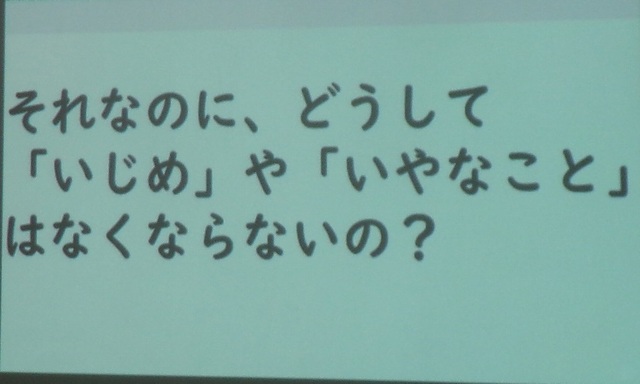 それなのに、どうして
「いじめ」や「いやなこと」
はなくならないの？